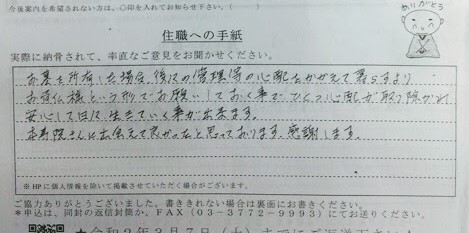 今後案内を希望されない方は、○印を入れてお知らせ下さい。（　　）
ありがとう
住職への手紙
実際に納骨されて、率直なご意見をお聞かせください。
お墓を所有した場合、後々の管理等の心配をかかえて暮らすより
お寺に様という形でお願いしておく事でひとつ心配が取り除かれ
安心して日々生きていく事が出来ます。
お寿院さんに出会えて良かったと思っております。感謝します。
※HPに個人情報を除いて掲載させていただく場合がございます。
ご協力ありがとうございました。書ききれない場合は裏面にお書きください。
*申込は、同封の返信封筒か、FAX（03-3772-9993）にてお送りください。
★令和2年3月7日（土）までにご返送下さい